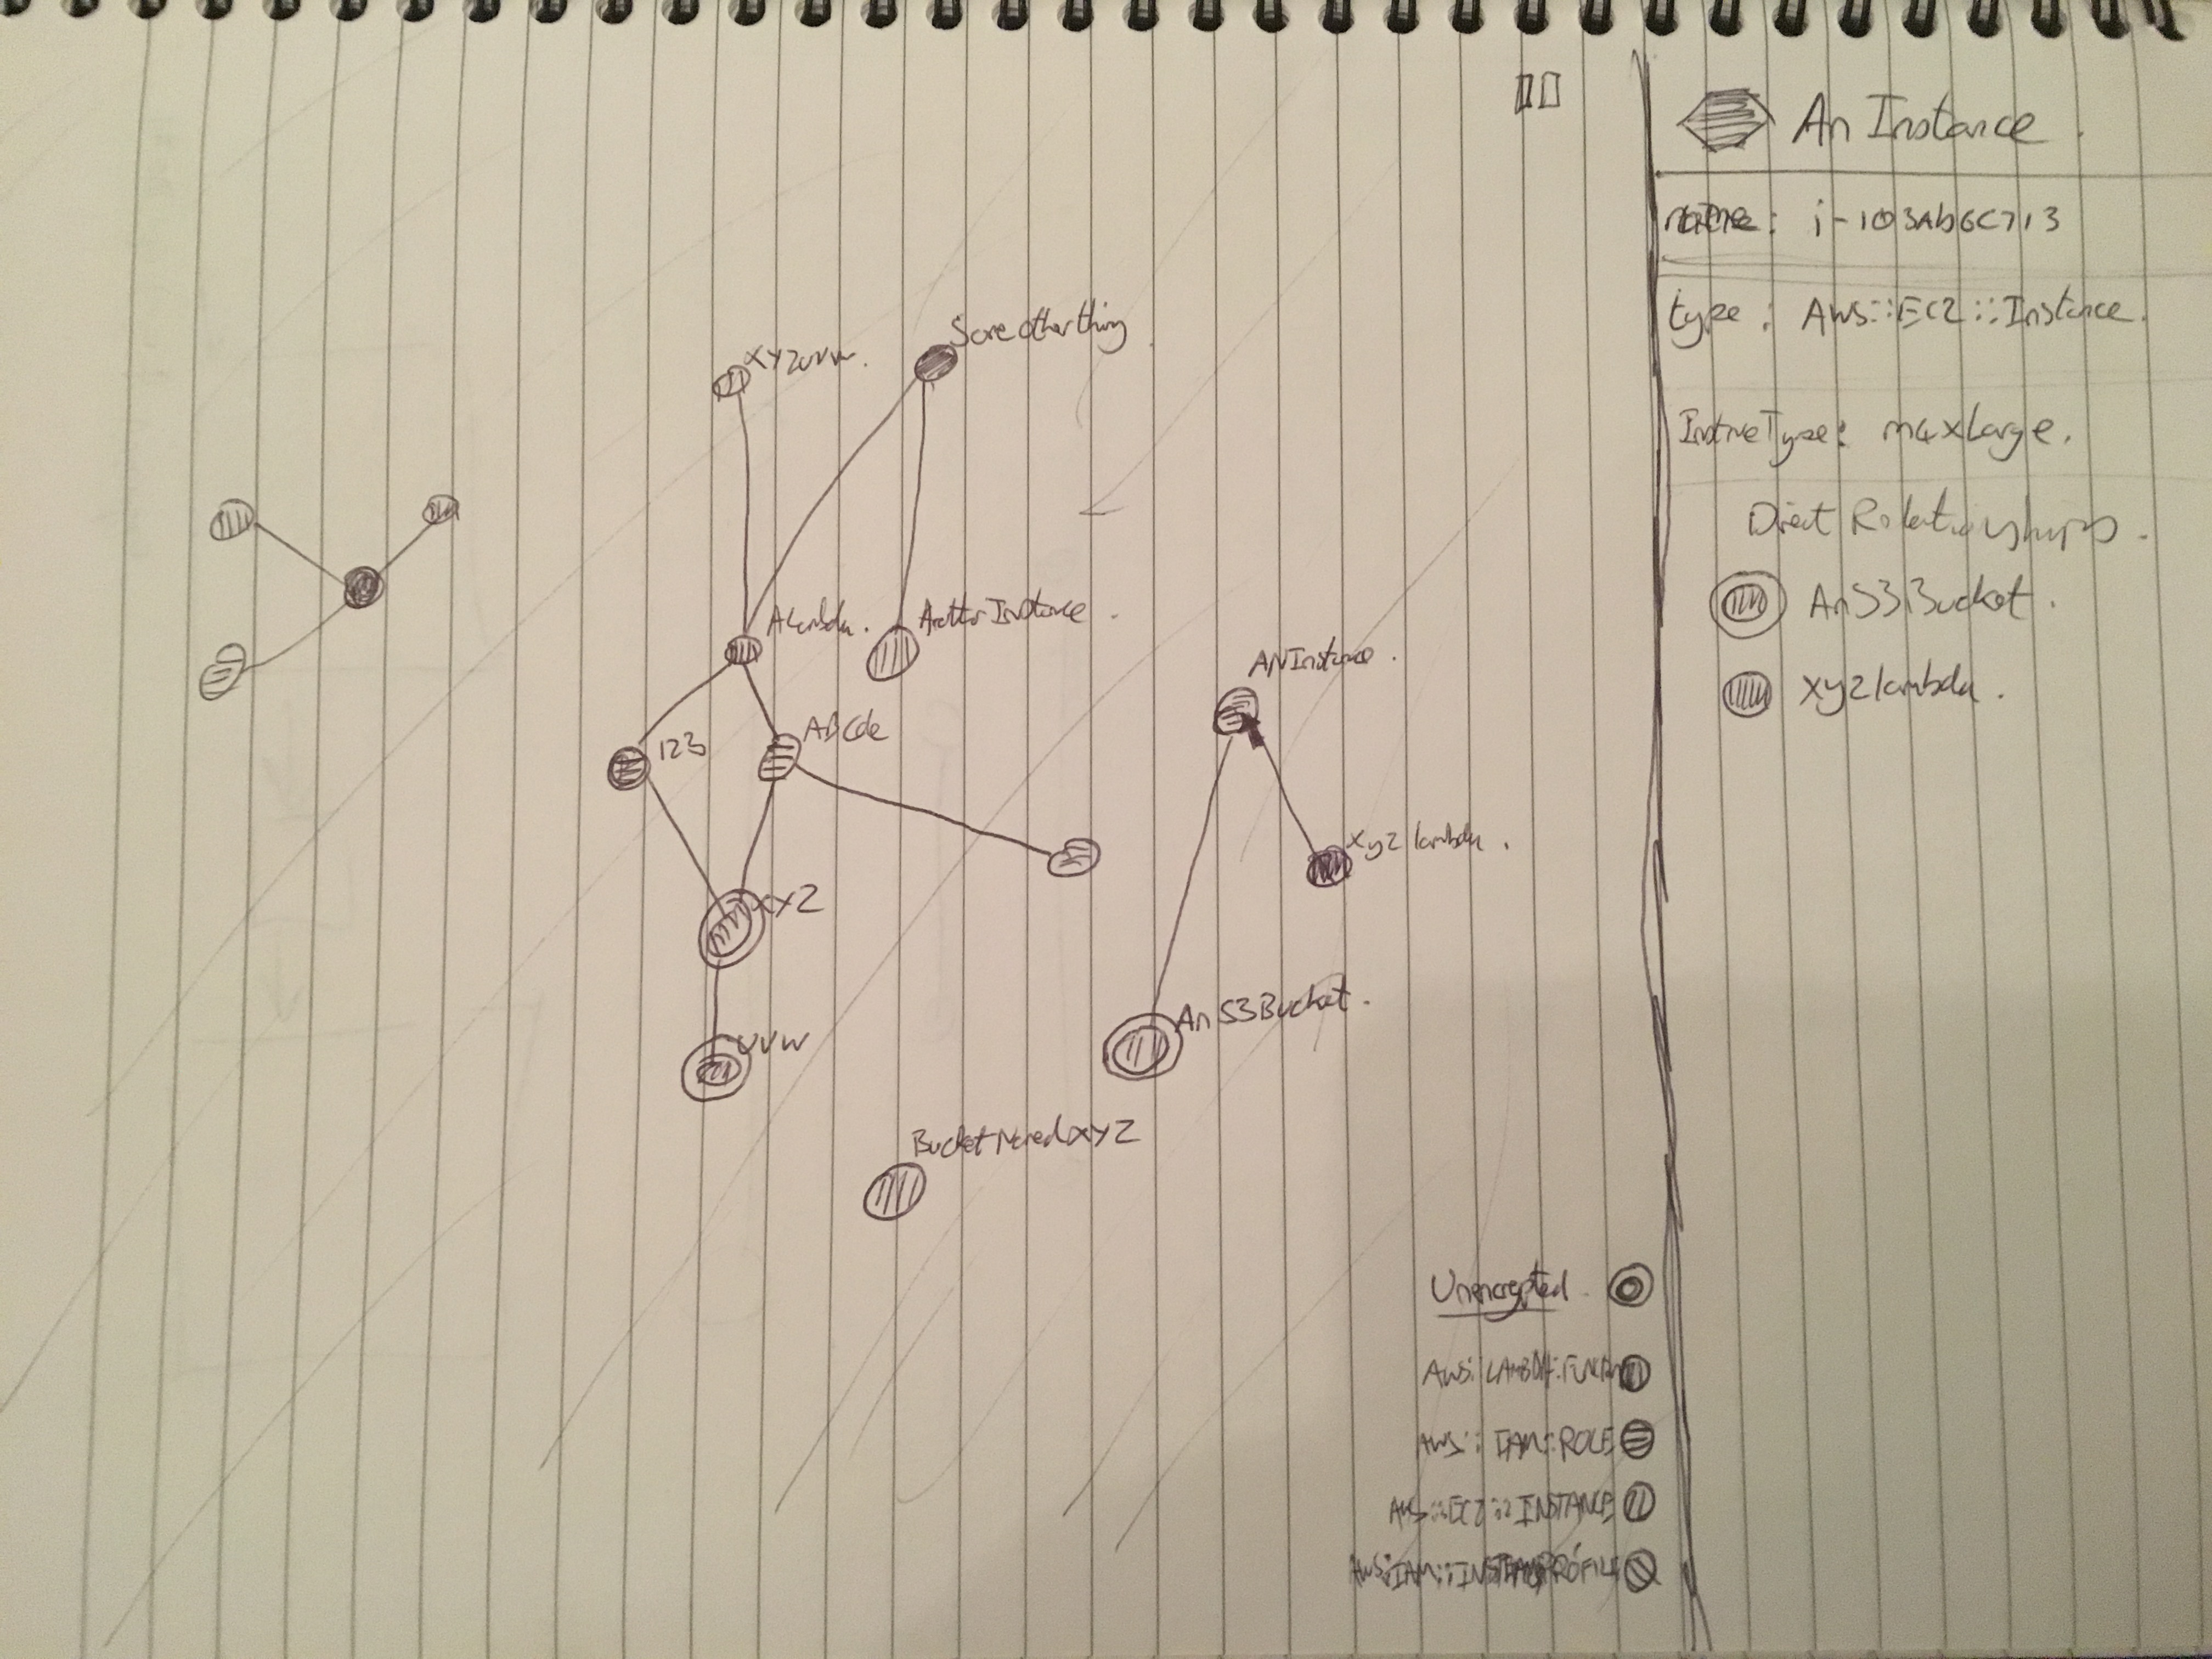 An Instance.
name: i-103Ab6C713
type: AWS::EC2::Instance.
InstnceType: m4xLarge.
Direct Relationships.
AnS3Bucket.
xyzlambda.
XYZUVW.
Some other thing
ALambda.
Another Instance.
123
ABCde
XYZ
UVW
ANInstance.
xyz lambda.
An S3Bucket.
BucketNamedXYZ
Unencrypted.
AWS::LAMBDA::
AWS::IAM::ROLE
AWS::EC2::INSTANCE